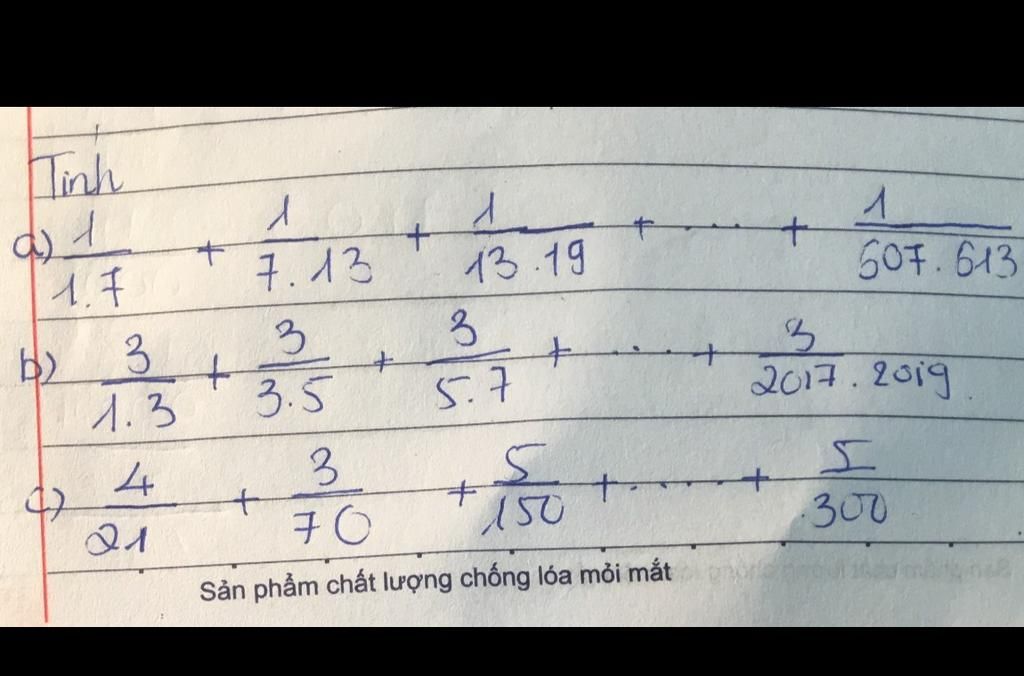 Tính
a) 1/1.7 + 1/7.13 + 1/13.19 + .... + 1/607.613
b) 3/1.3 + 3/3.5 + 3/5.7 + ..... + 3/2017.2019
c) 4/21 + 3/70 + 5/150 + ..... + 5/300
Sản phẩm chất lượng chống lóa mỏi mắt